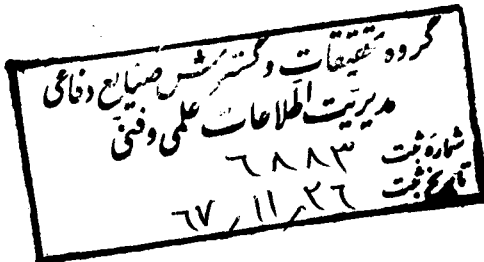 گروه تحقیقات و گسترش صنایع دفاعی
مدیریت اطلاعات علمی و فنی
شماره ثبت ٦٨٨٣
تاریخ ثبت ٦٧/١١/٢٦